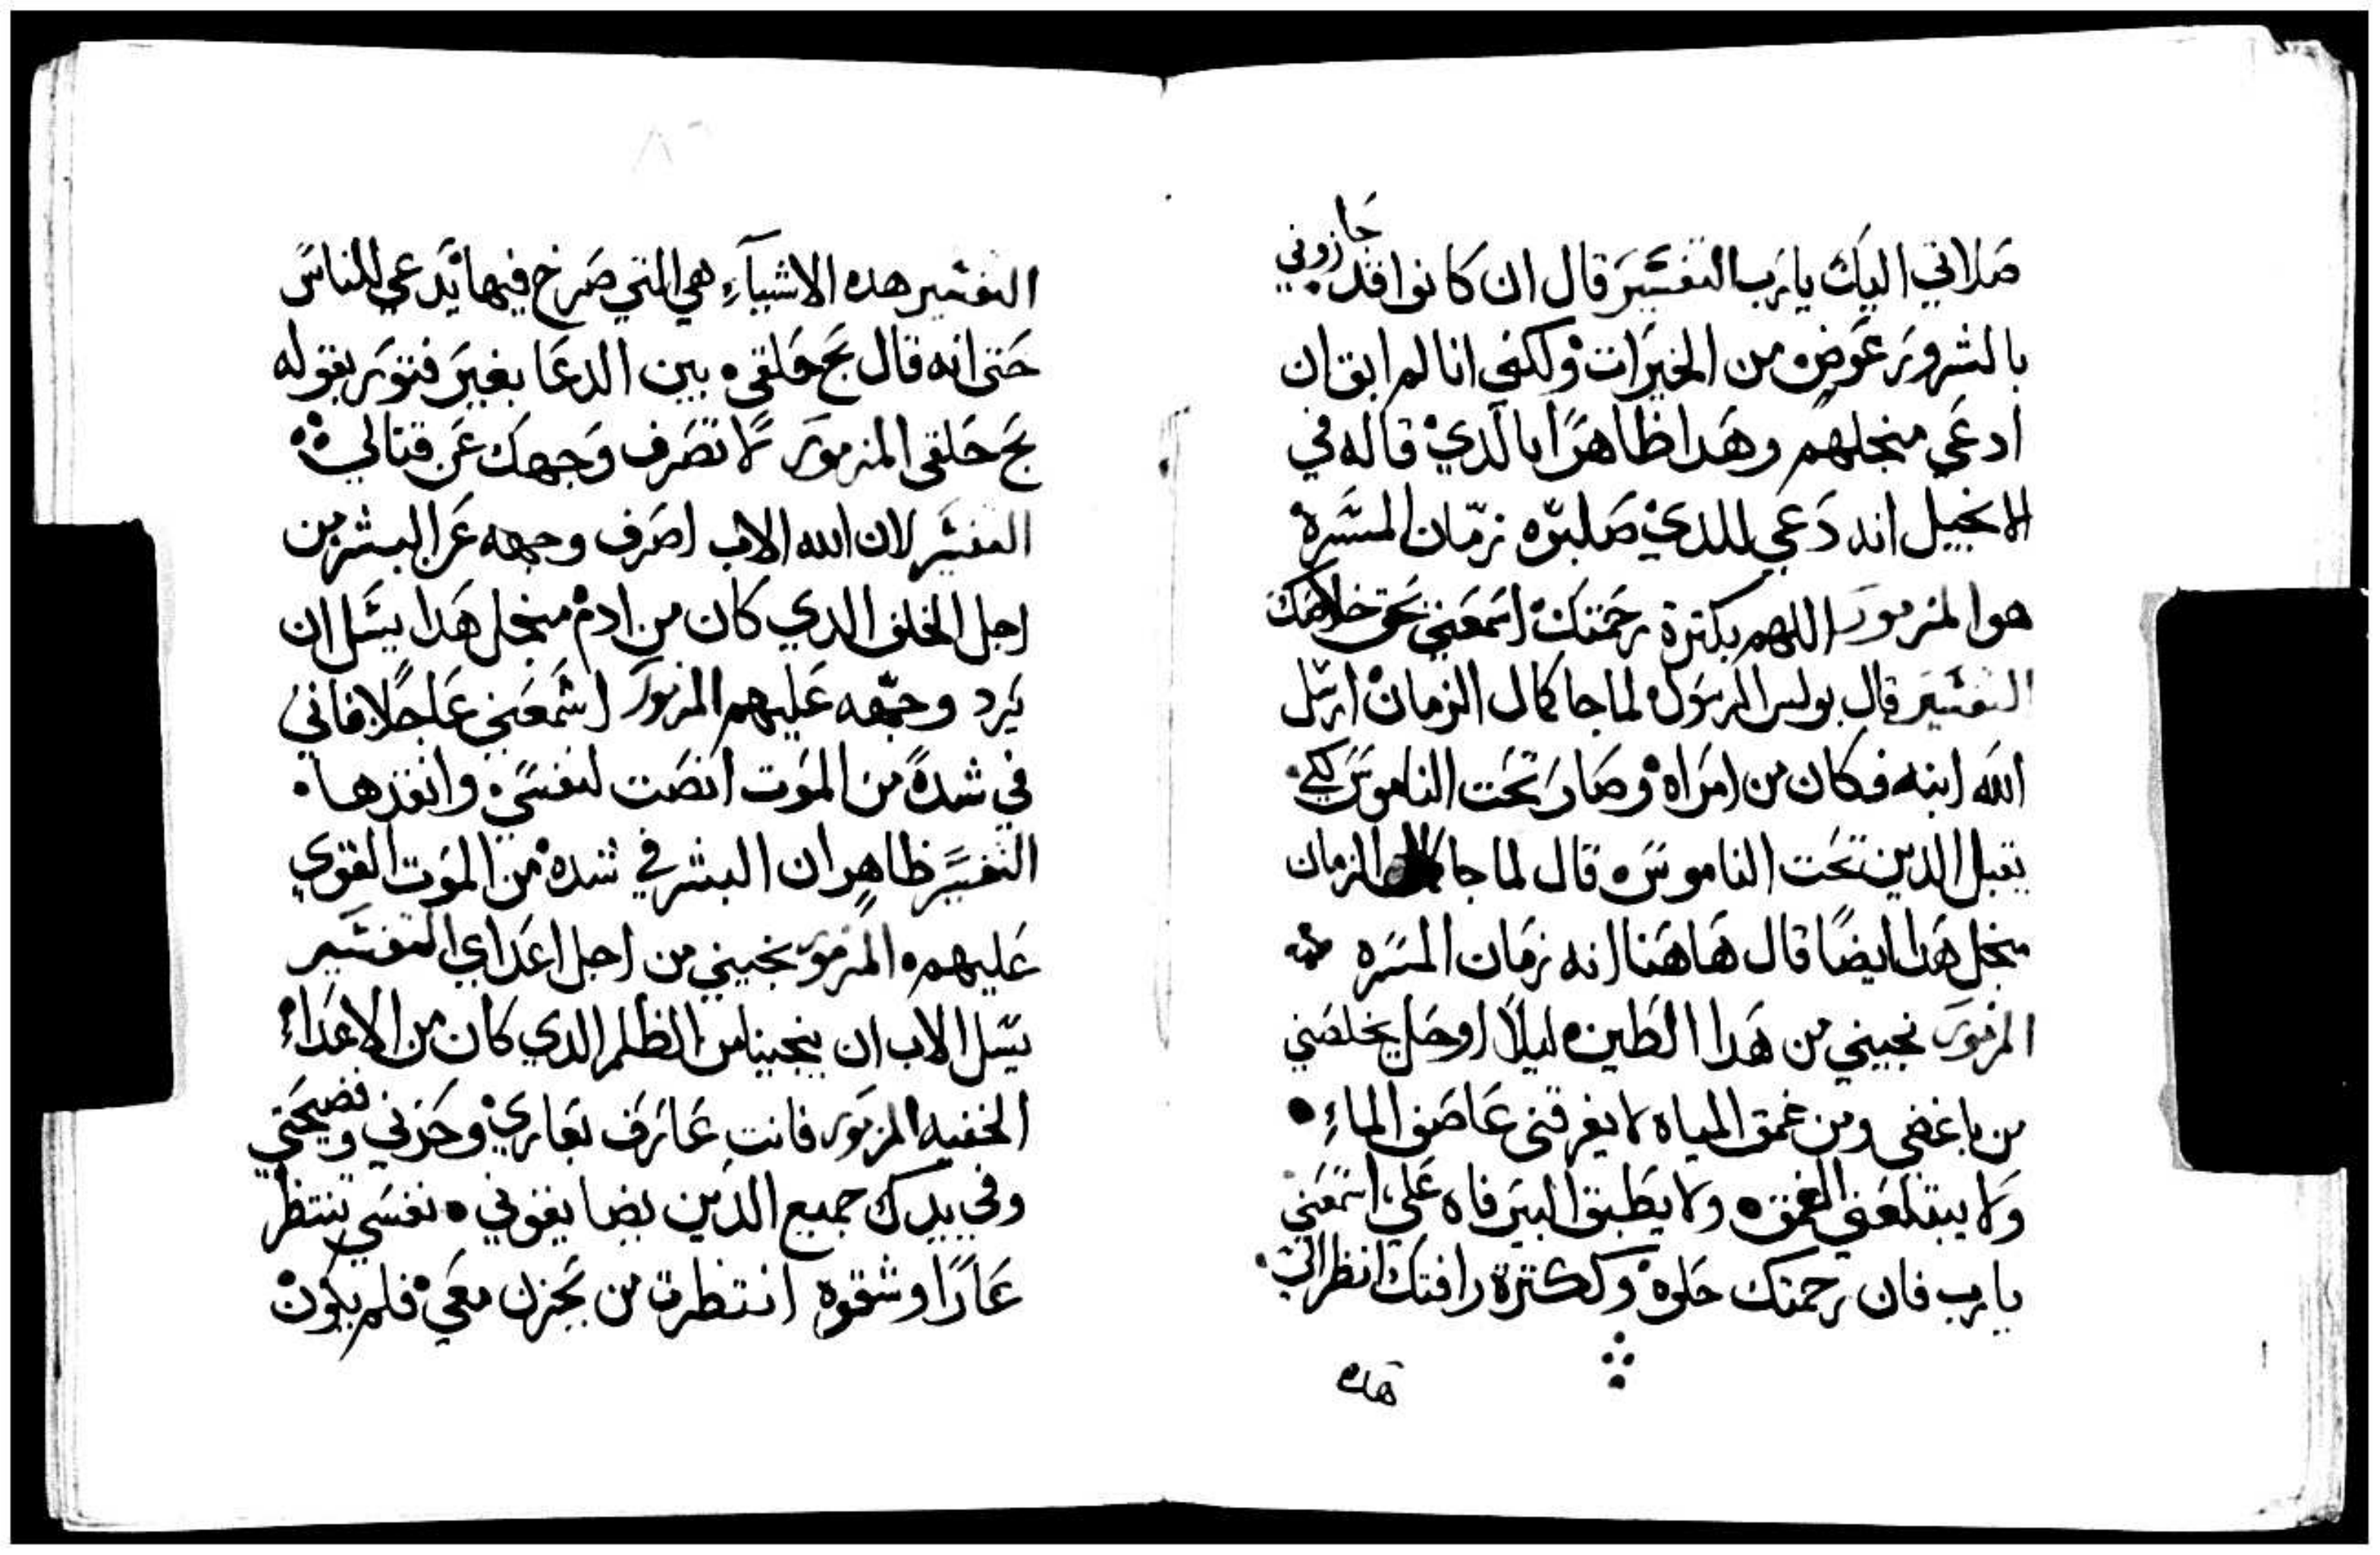 صلاتي اليك يا رب التفسير قال ان كانوا قد جازوني
بالشرور عوض من الخيرات ولكني انا لم ابق ان
ادعي منجلهم وهدا ظاهرا بالدي قاله في
الانجيل انه دعي للدي صلبوه زمان المسرة
هوا المزمور اللهم بكترة رحمتك اسمعني بحق خلاصك
التفسير قال بولس الرسول لما جا كمال الزمان ارسل
الله ابنه فكان من امراه وصار تحت الناموس لكي
يقبل الدين تحت الناموس قال لما جا كمال الزمان
منجل هدا ايضا قال هاهنا انه زمان المسره
المزمور نجيني من هدا الطين ليلا اوحل يخلصني
من باغضي ومن غمق المياه لا يغرقني عاصف الماء
ولا يبتلعني الغمق ولا يطبق البير فاه علي اسمعني
يا رب فان رحمتك حلوه وككترة رافتك انظر الي
هده
٨٦
التفسير هده الاشياء هي التي صرخ فيها يدعي للناس
حتى انه قال بح حلقي بين الدعا بغير فتور بقوله
بح حلقي المزمور لا تصرف وجهك عن فتالي
التفسير لان الله الاب اصرف وجهه عن البشر من
اجل الخلف الدي كان من ادم منجل هدا يسل ان
يرد وجهه عليهم المزمور اسمعني عاجلا فاني
في شدة من الموت انصت لنفسي وانقدها
التفسير ظاهر ان البشر في شده من الموت القوي
عليهم المزمور نجيني من اجل اعداي التفسير
يسل الاب ان ينجينا من الظلم الدي كان من الاعداء
الخفيه المزمور فانت عارف بعاري وخزني وفضيحتي
وفي يدك جميع الدين يضايقوني نفسي تنتظر
عارا وشقوه انتظرت من يحزن معي فلم يكون